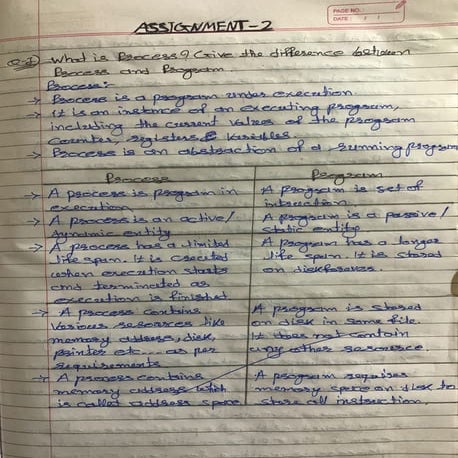 PAGE NO.:
DATE: / /
ASSIGNMENT-2
Q-1) What is Process? Give the difference between
Process and Program.
Process:
→ Process is a program under execution.
→ It is an instance of an executing program,
including the current values of the program
counter, registers & variables.
→ Process is an abstraction of a running program
Process
Program
→ A process is program in
execution
A program is set of
intruction.
→ A process is an active/
dynamic entity
A program is a passive/
static entity.
→ A process has a limited
life span. It is created
when execution starts
and terminated as
execution is finished
A program has a longer
life span. It is stored
on disk forever.
→ A process contains
various resources like
memory address, disk,
printer etc... as per
requirements
A program is stored
on disk in some file.
It does not contain
any other resource.
→ A process contains
memory address which
is called address space
A program requires
memory space on disk to
store all instruction.